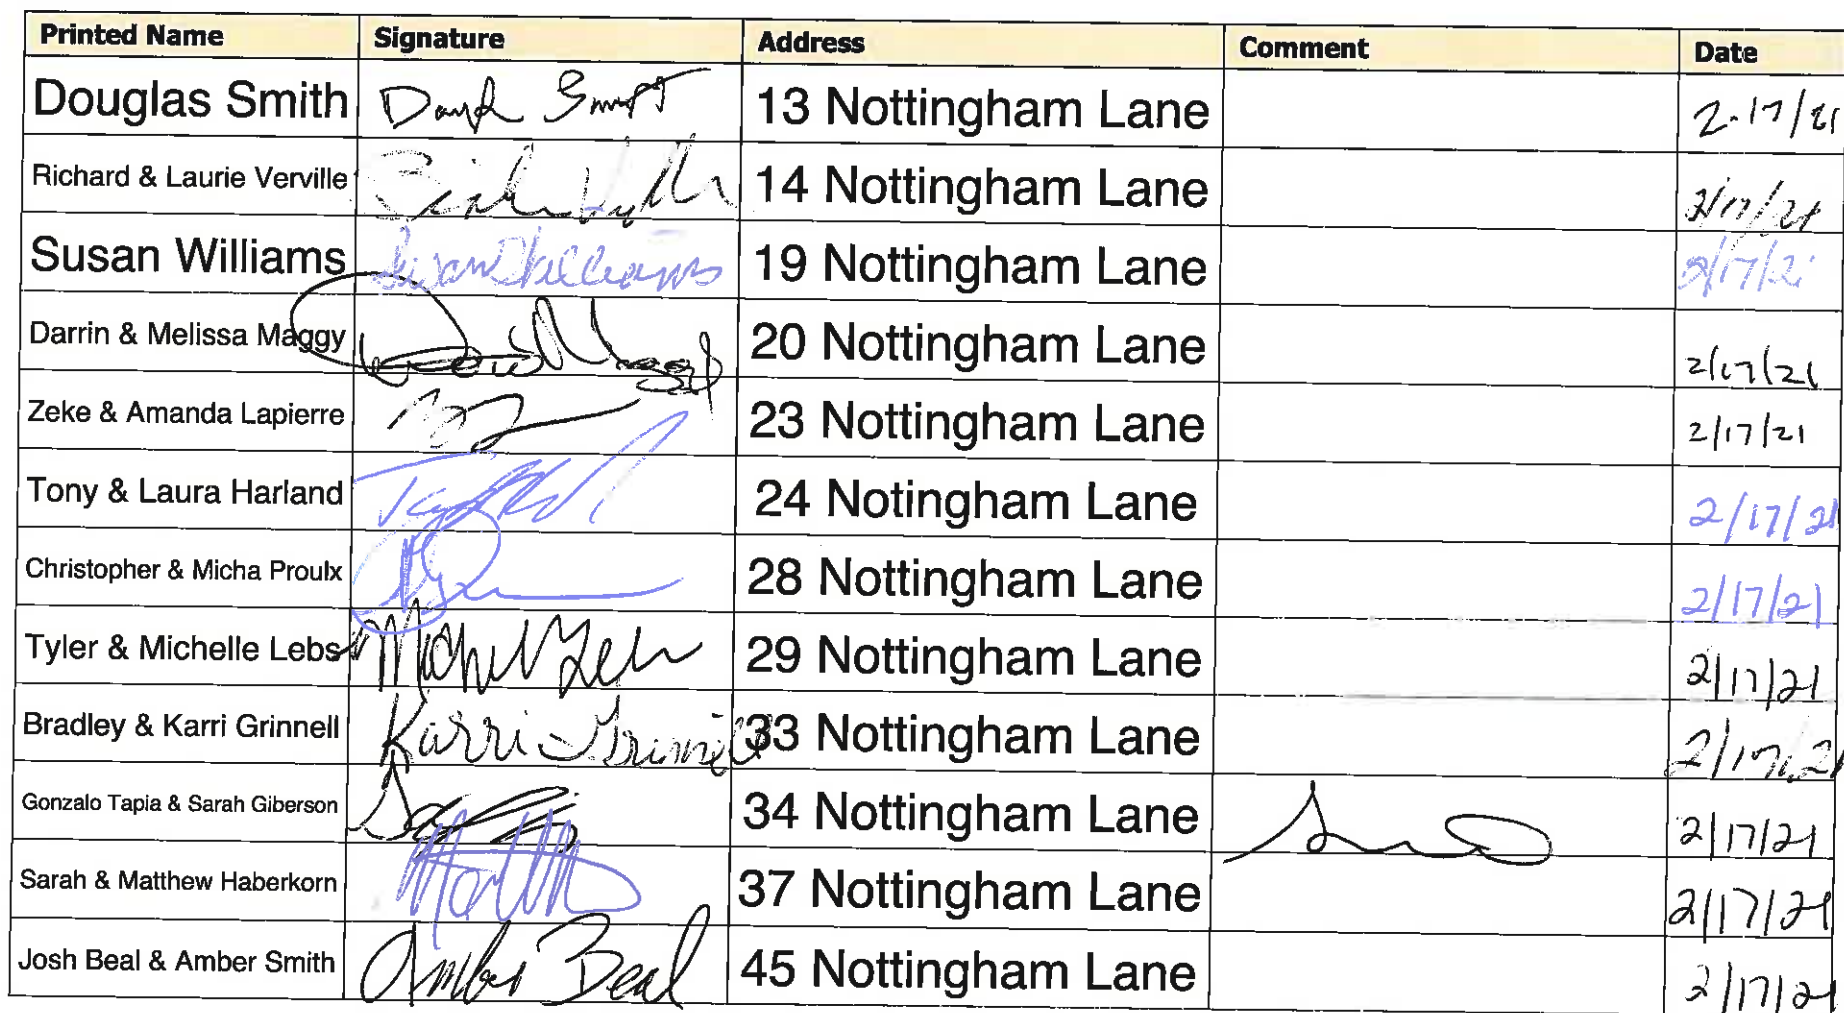 Printed Name Signature Address Comment Date
Douglas Smith 13 Nottingham Lane 2-17/21
Richard & Laurie Verville 14 Nottingham Lane 2/17/21
Susan Williams Susan Williams 19 Nottingham Lane 2/17/21
Darrin & Melissa Maggy 20 Nottingham Lane 2/17/21
Zeke & Amanda Lapierre 23 Nottingham Lane 2/17/21
Tony & Laura Harland 24 Notingham Lane 2/17/21
Christopher & Micha Proulx 28 Nottingham Lane 2/17/21
Tyler & Michelle Lebs 29 Nottingham Lane 2/17/21
Bradley & Karri Grinnell Karri Grinnell 33 Nottingham Lane 2/17/21
Gonzalo Tapia & Sarah Giberson 34 Nottingham Lane 2/17/21
Sarah & Matthew Haberkorn 37 Nottingham Lane 2/17/21
Josh Beal & Amber Smith Amber Beal 45 Nottingham Lane 2/17/21